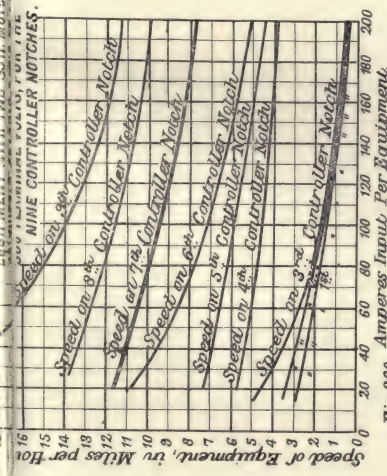 NINE CONTROLLER NOTCHES.
Speed on 9th Controller Notch
Speed on 8th Controller Notch
Speed on 7th Controller Notch
Speed on 6th Controller Notch
Speed on 5th Controller Notch
Speed on 4th Controller Notch
Speed on 3rd Controller Notch
" " 1st " "
Speed of Equipment, in Miles per Hou
16
15
14
13
12
11
10
9
8
7
6
5
4
3
2
1
0
20
40
60
80
100
120
140
160
180
200
Amperes Input, Per Equipment.